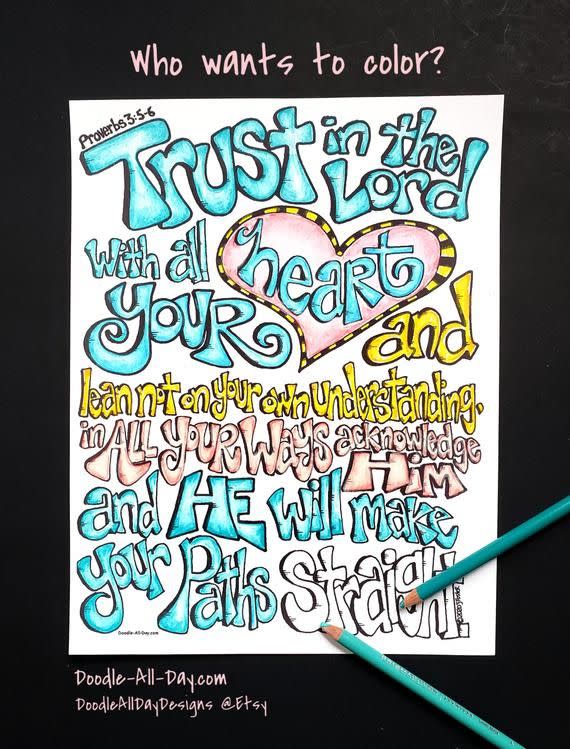 Who wants to color?
Proverbs 3:5-6
Trust in the
Lord
with all
your heart
and
lean not on your own understanding.
in ALL YOUR WAYS acknowledge
HiM
and HE will make
your Paths Straight!
Doodle-All-Day.com
Doodle-All-Day.com
DoodleAllDayDesigns @Etsy